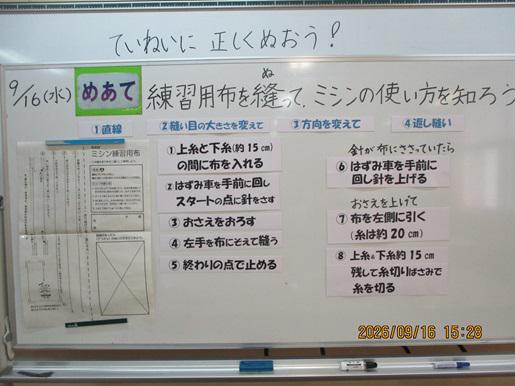 ていねいに 正しくぬおう!
9/16(水) めあて 練習用布を縫って、ミシンの使い方を知ろう
ぬ
1 直線
2 縫い目の大きさを変えて
3 方向を変えて
4 返し縫い
ミシン練習用布
1 上糸と下糸(約 15 cm)
の間に布を入れる
2 はずみ車を手前に回し
スタートの点に針をさす
3 おさえをおろす
4 左手を布にそえて縫う
5 終わりの点で止める
針が布にささっていたら
6 はずみ車を手前に
回し針を上げる
おさえを上げて
7 布を左側に引く
(糸は約 20 cm)
8 上糸&下糸約 15 cm
残して糸切りばさみで
糸を切る
2026/09/16 15:28